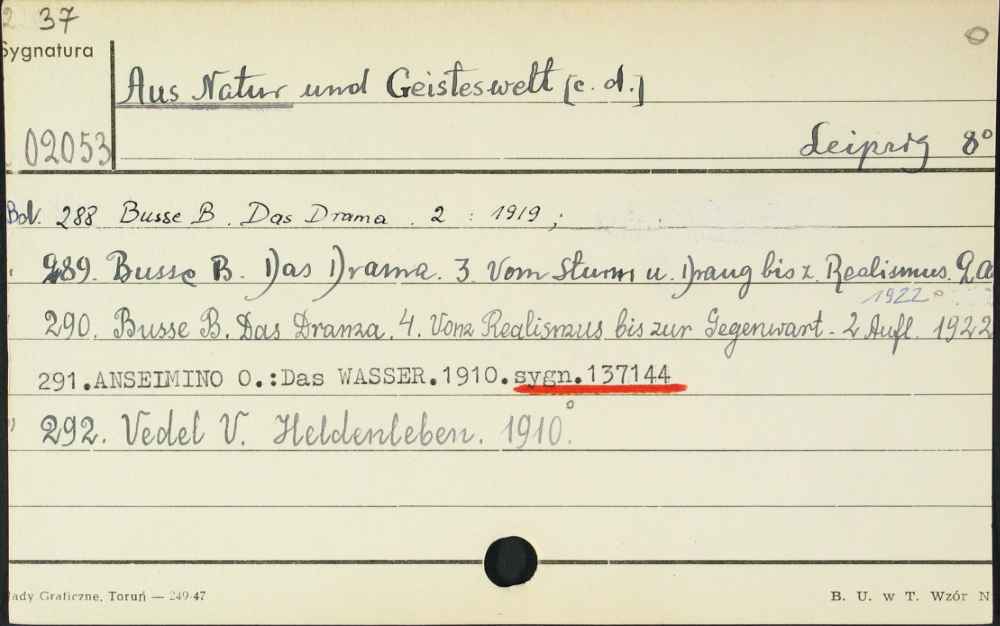 2. 37
Sygnatura
Aus Natur und Geisteswelt [c. d.]
02053
Leipzig 8°
Bd. 288 Busse B. Das Drama. 2 : 1919 ;
" 289. Busse B. Das Drama. 3. Vom Sturm u. Drang bis z. Realismus. 2 A
1922
" 290. Busse B. Das Drama. 4. Vom Realismus bis zur Gegenwart. 2 Aufl. 1922
291.ANSEIMINO O.:Das WASSER.1910.sygn.137144
" 292. Vedel V. Heldenleben. 1910.
ady Graficzne, Toruń — 249-47
B. U. w T. Wzór N